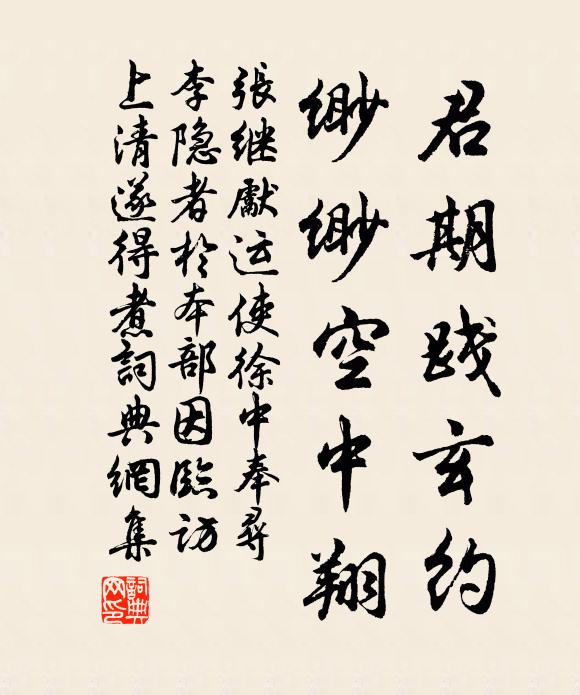 君期践玄约
缈缈空中翔
張继獻运使徐中奉尋
李隐者於本部因臨访
上清遂得煮詞典網集
詞典網印